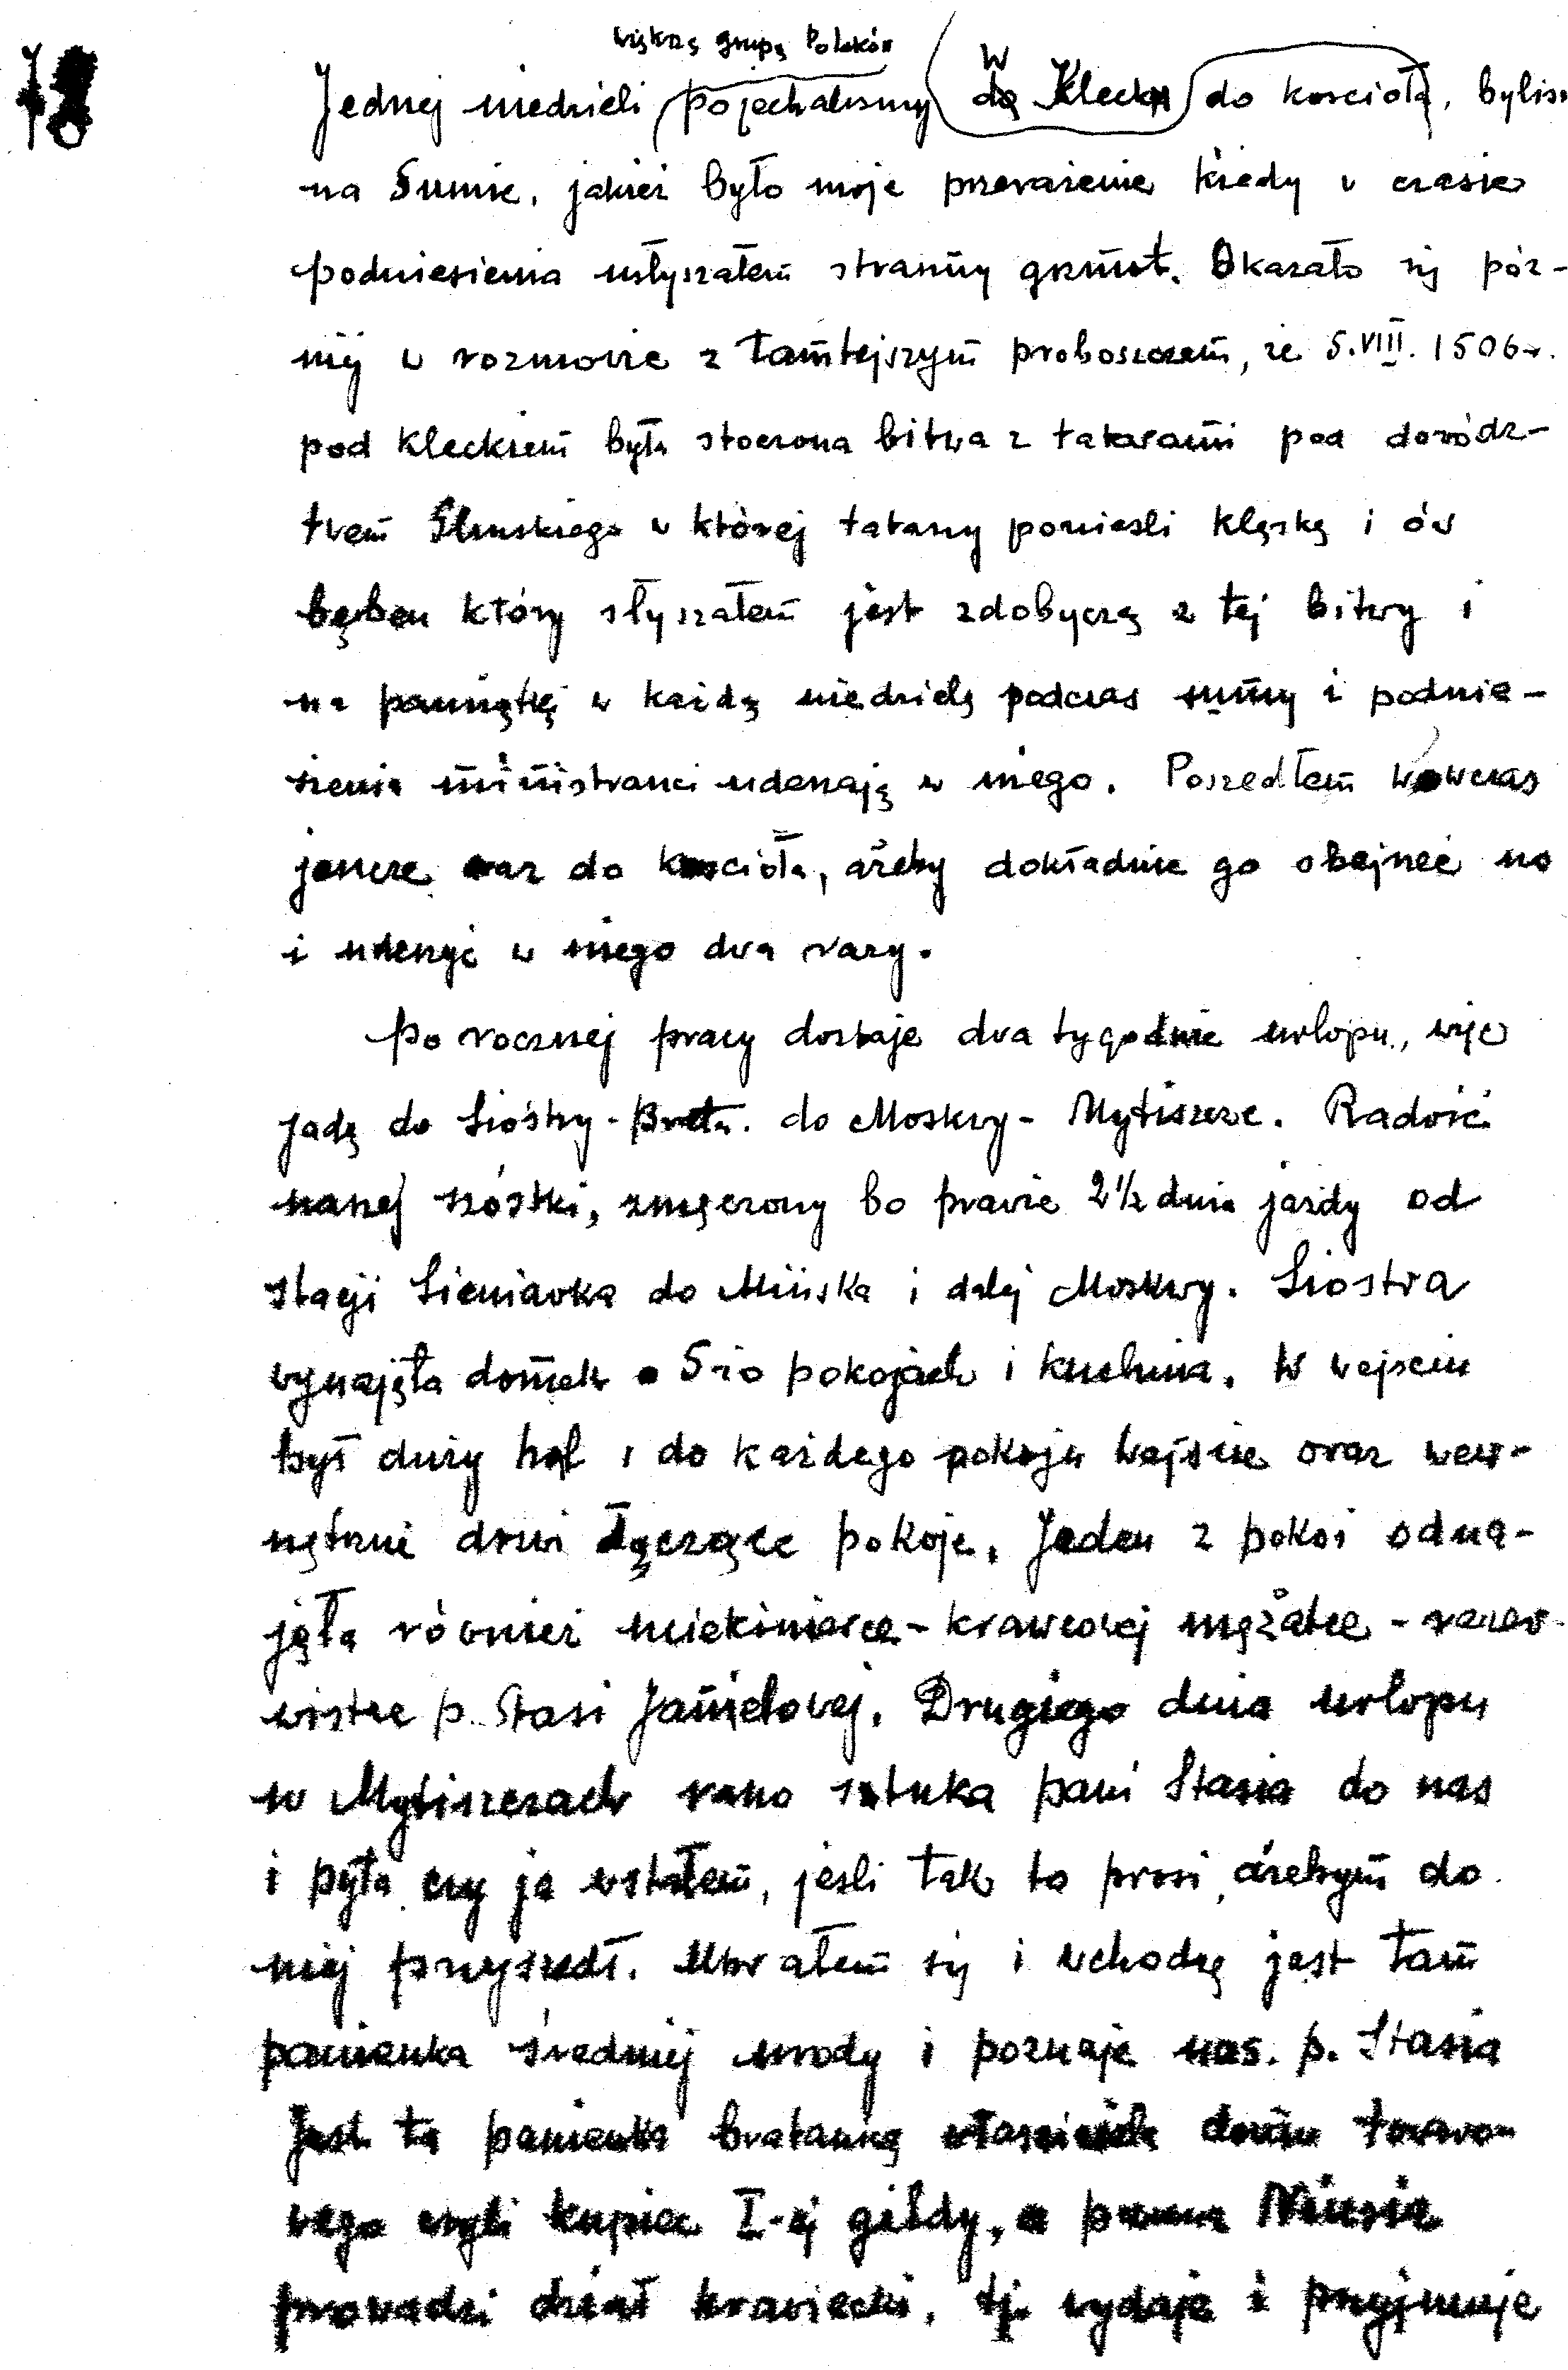 większą grupą Polaków
Jednej niedzieli pojechalismy w Klecku do koscioła, bylis
na Sumie, jakież było moje przerażenie kiedy w czasie
podniesienia usłyszałem straszny grzmot. Okazało się póz-
niej w rozmowie z tamtejszym proboszczem, że 5.VIII. 1506 r.
pod Kleckiem była stoczona bitwa z tatarami pod dowódz-
twem Glinskiego w której tatarzy poniesli klęskę i ów
bęben który słyszałem jest zdobyczą z tej bitwy i
na pamiątkę w każdą niedzielę podczas sumy i podnie-
sienia ministranci uderzają w niego. Poszedłem wówczas
jeszcze raz do koscioła, ażeby dokładnie go obejrzeć no
i uderzyć w niego dwa razy.
Po rocznej pracy dostaje dwa tygodnie urlopu, więc
jadę do Siostry - Brata. do Moskwy - Mytiszcze. Radość
naszej szóstki, zmęczony bo prawie 2 1/2 dnia jazdy od
stacji Sieniawka do Mińska i dalej Moskwy. Siostra
wynajęła domek o 5-io pokojach i kuchnia. W wejsciu
był duży hol i do każdego pokoju wejscie oraz wew-
nętrzne drzwi łączące pokoje. Jeden z pokoi odna-
jęła również uciekinierce - krawcowej mężatce - rezer-
wistce p. Stasi Drugiego dnia urlopu
w Mytiszczach rano stuka pani Stasia do nas
i pyta czy ja wstałem, jesli tak to prosi, ażebym do
niej przyszedł. Ubrałem się i wchodzę jest tam
panienka średniej urody i poznaje nas. p. Stasia
Jest ta panienka bratanicą własciciela domu towaro-
wego czyli kupiec I-ej gildy, a panna Niusia
prowadzi dział krawiecki, tj. wydaje i przyjmuje